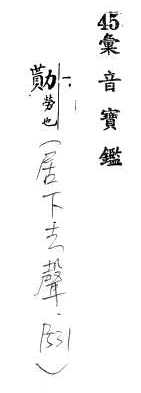 45彙音寶鑑
勩勞也(居下去聲.P531)